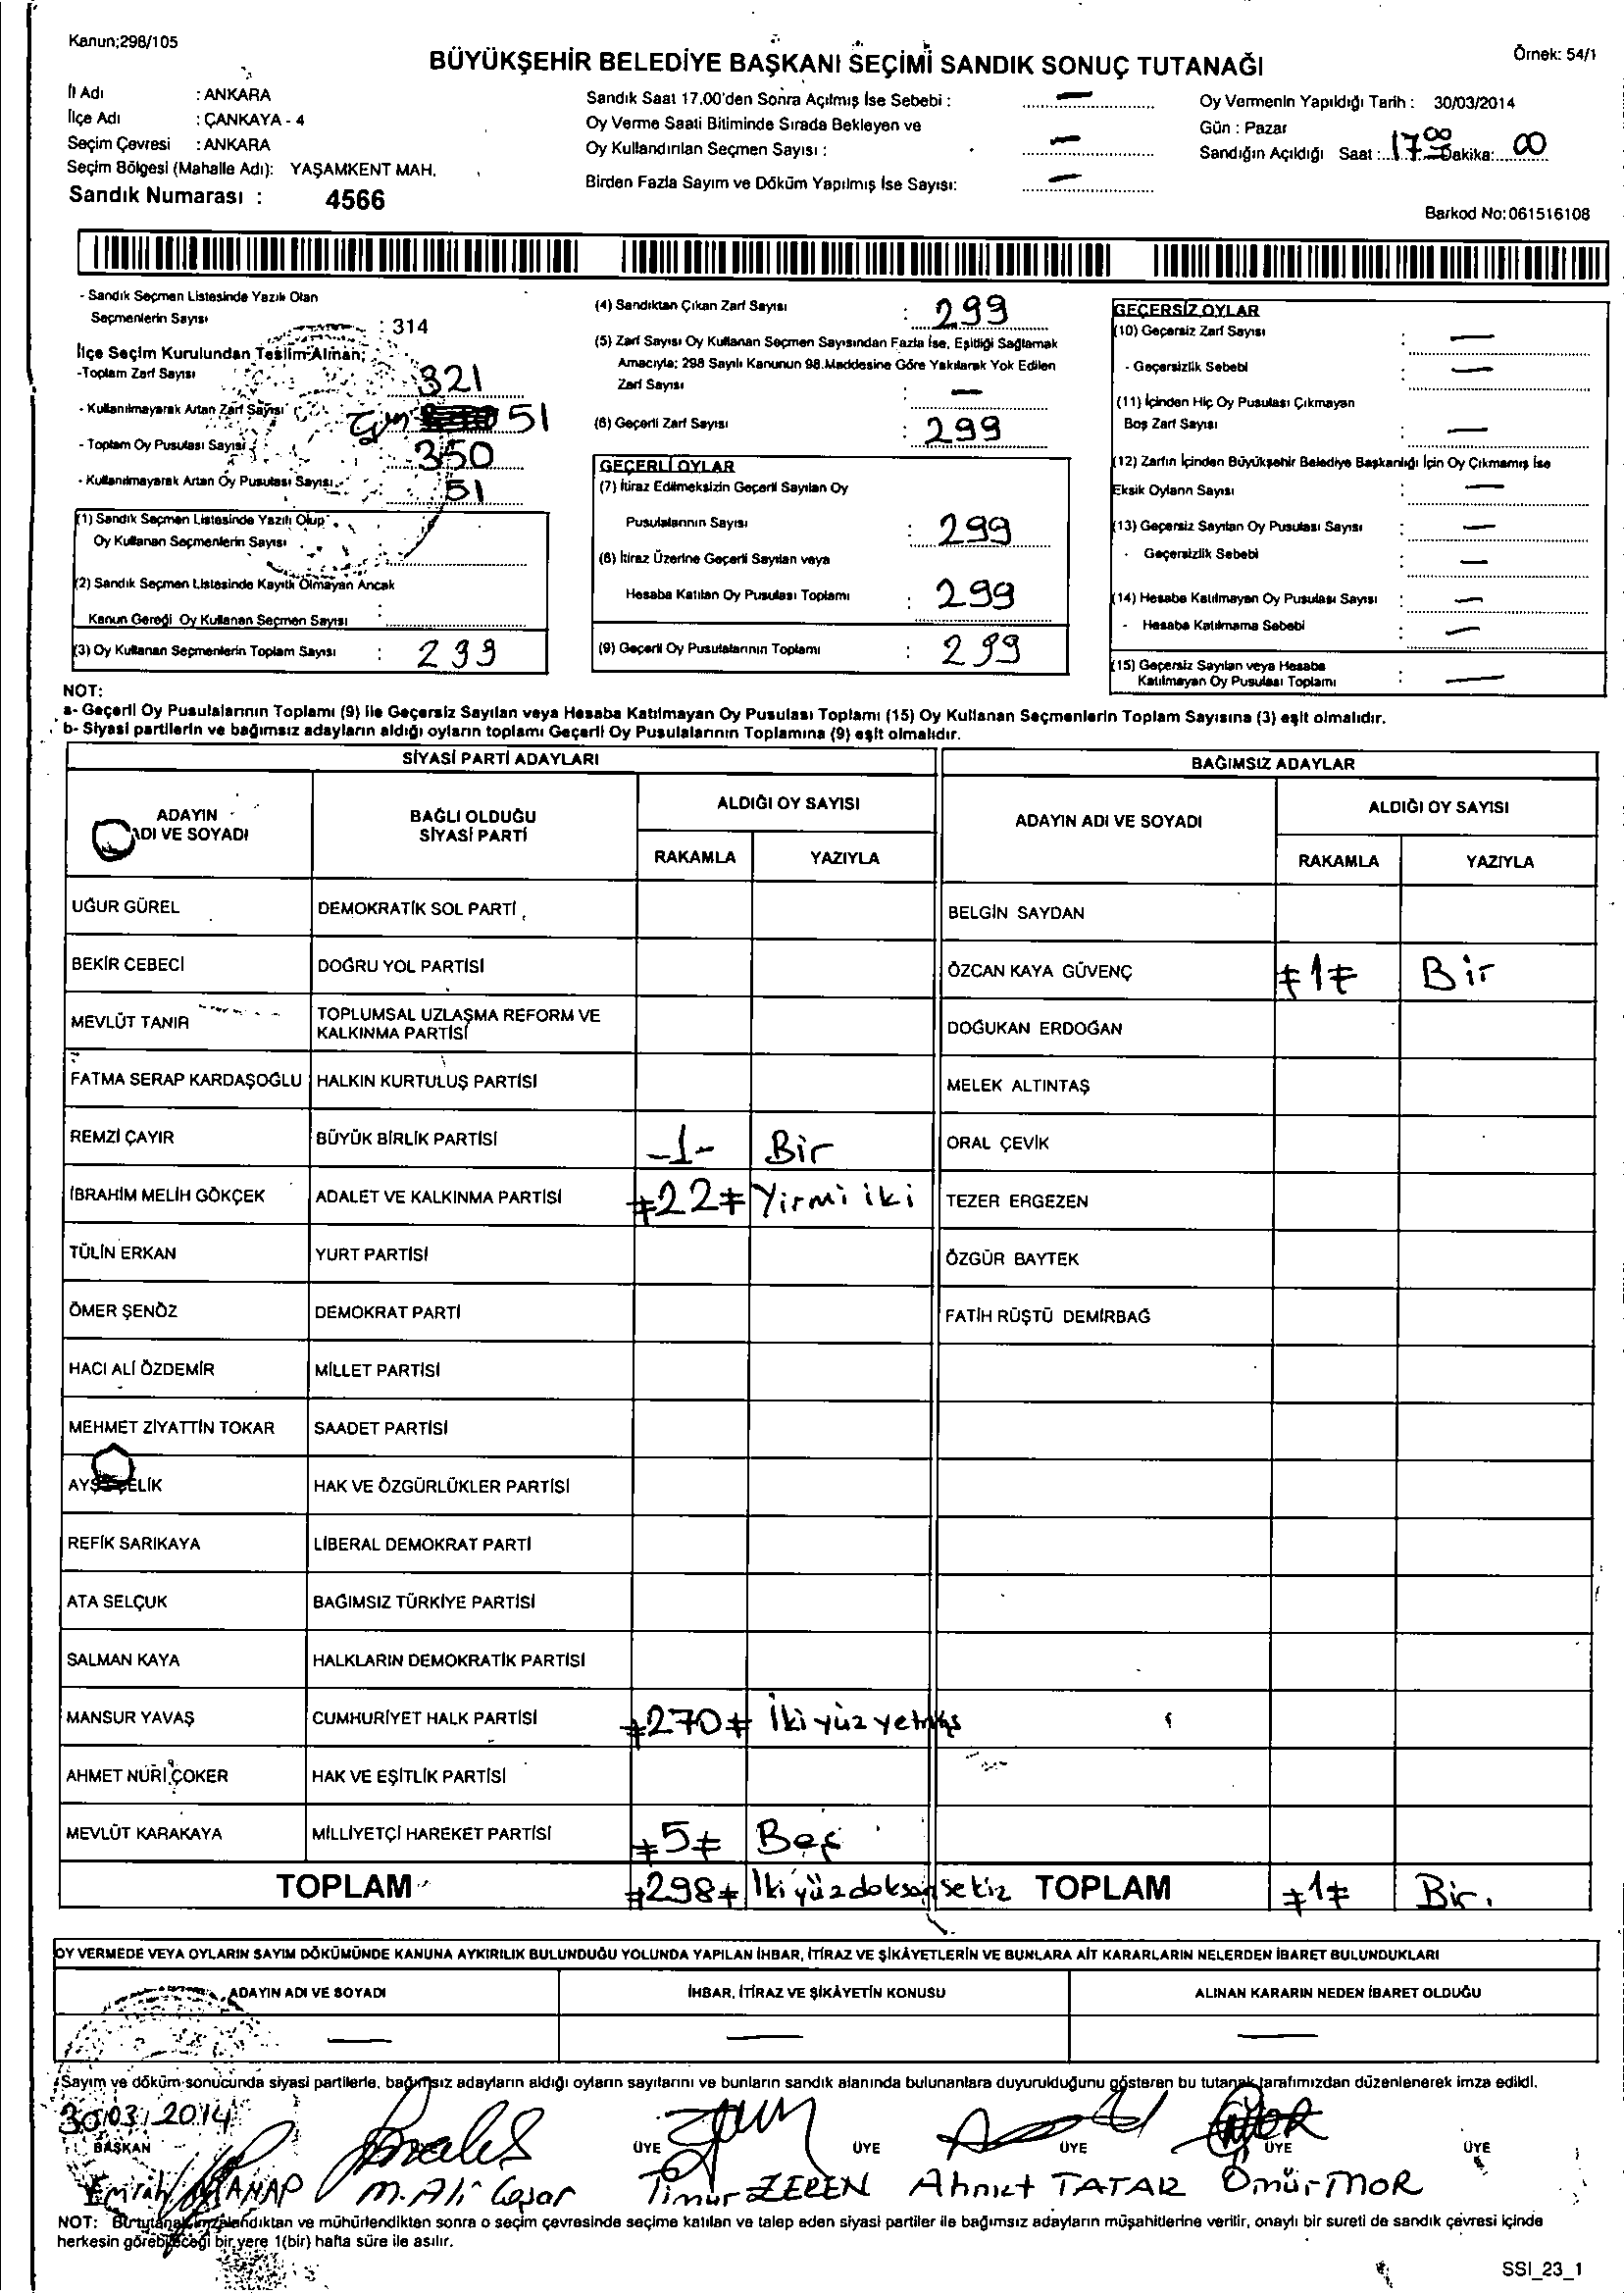 Kanun;298/105
Örnek: 54/1
BÜYÜKŞEHİR BELEDİYE BAŞKANI SEÇİMİ SANDIK SONUÇ TUTANAĞI
İl Adı : ANKARA
İlçe Adı : ÇANKAYA - 4
Seçim Çevresi : ANKARA
Seçim Bölgesi (Mahalle Adı): YAŞAMKENT MAH.
Sandık Numarası : 4566
Sandık Saat 17.00'den Sonra Açılmış İse Sebebi : —
Oy Verme Saati Bitiminde Sırada Bekleyen ve
Oy Kullandırılan Seçmen Sayısı : —
Birden Fazla Sayım ve Döküm Yapılmış İse Sayısı: —
Oy Vermenin Yapıldığı Tarih : 30/03/2014
Gün : Pazar
Sandığın Açıldığı Saat :17 00 Dakika: 00
Barkod No:061516108
- Sandık Seçmen Listesinde Yazılı Olan
Seçmenlerin Sayısı : 314
İlçe Seçim Kurulundan Teslim Alınan;
-Toplam Zarf Sayısı 321
- Kullanılmayarak Artan Zarf Sayısı 51
- Toplam Oy Pusulası Sayısı 350
- Kullanılmayarak Artan Oy Pusulası Sayısı 51
(1) Sandık Seçmen Listesinde Yazılı Olup
Oy Kullanan Seçmenlerin Sayısı
(2) Sandık Seçmen Listesinde Kayıtlı Olmayan Ancak
Kanun Gereği Oy Kullanan Seçmen Sayısı :
(3) Oy Kullanan Seçmenlerin Toplam Sayısı : 299
(4) Sandıktan Çıkan Zarf Sayısı : 299
(5) Zarf Sayısı Oy Kullanan Seçmen Sayısından Fazla İse, Eşitliği Sağlamak
Amacıyla; 298 Sayılı Kanunun 98.Maddesine Göre Yakılarak Yok Edilen
Zarf Sayısı : —
(6) Geçerli Zarf Sayısı : 299
GEÇERLİ OYLAR
(7) İtiraz Edilmeksizin Geçerli Sayılan Oy
Pusulalarının Sayısı : 299
(8) İtiraz Üzerine Geçerli Sayılan veya
Hesaba Katılan Oy Pusulası Toplamı : 299
(9) Geçerli Oy Pusulalarının Toplamı : 299
GEÇERSİZ OYLAR
(10) Geçersiz Zarf Sayısı : —
- Geçersizlik Sebebi : —
(11) İçinden Hiç Oy Pusulası Çıkmayan
Boş Zarf Sayısı : —
(12) Zarfın İçinden Büyükşehir Belediye Başkanlığı İçin Oy Çıkmamış İse
Eksik Oyların Sayısı : —
(13) Geçersiz Sayılan Oy Pusulası Sayısı : —
- Geçersizlik Sebebi : —
(14) Hesaba Katılmayan Oy Pusulası Sayısı : —
- Hesaba Katılmama Sebebi : —
(15) Geçersiz Sayılan veya Hesaba
Katılmayan Oy Pusulası Toplamı : —
NOT:
a- Geçerli Oy Pusulalarının Toplamı (9) ile Geçersiz Sayılan veya Hesaba Katılmayan Oy Pusulası Toplamı (15) Oy Kullanan Seçmenlerin Toplam Sayısına (3) eşit olmalıdır.
b- Siyasi partilerin ve bağımsız adayların aldığı oyların toplamı Geçerli Oy Pusulalarının Toplamına (9) eşit olmalıdır.
SİYASİ PARTİ ADAYLARI BAĞIMSIZ ADAYLAR
ADAYIN ADI VE SOYADI BAĞLI OLDUĞU SİYASİ PARTİ ALDIĞI OY SAYISI ADAYIN ADI VE SOYADI ALDIĞI OY SAYISI
RAKAMLA YAZIYLA RAKAMLA YAZIYLA
UĞUR GÜREL DEMOKRATİK SOL PARTİ BELGİN SAYDAN
BEKİR CEBECİ DOĞRU YOL PARTİSİ ÖZCAN KAYA GÜVENÇ ≠1≠ Bir
MEVLÜT TANIR TOPLUMSAL UZLAŞMA REFORM VE KALKINMA PARTİSİ DOĞUKAN ERDOĞAN
FATMA SERAP KARDAŞOĞLU HALKIN KURTULUŞ PARTİSİ MELEK ALTINTAŞ
REMZİ ÇAYIR BÜYÜK BİRLİK PARTİSİ -1- Bir ORAL ÇEVİK
İBRAHİM MELİH GÖKÇEK ADALET VE KALKINMA PARTİSİ ≠22≠ Yirmi iki TEZER ERGEZEN
TÜLİN ERKAN YURT PARTİSİ ÖZGÜR BAYTEK
ÖMER ŞENÖZ DEMOKRAT PARTİ FATİH RÜŞTÜ DEMİRBAĞ
HACI ALİ ÖZDEMİR MİLLET PARTİSİ
MEHMET ZİYATTİN TOKAR SAADET PARTİSİ
AYŞE ÇELİK HAK VE ÖZGÜRLÜKLER PARTİSİ
REFİK SARIKAYA LİBERAL DEMOKRAT PARTİ
ATA SELÇUK BAĞIMSIZ TÜRKİYE PARTİSİ
SALMAN KAYA HALKLARIN DEMOKRATİK PARTİSİ
MANSUR YAVAŞ CUMHURİYET HALK PARTİSİ ≠270≠ İkiyüz yetmiş
AHMET NURİ ÇOKER HAK VE EŞİTLİK PARTİSİ
MEVLÜT KARAKAYA MİLLİYETÇİ HAREKET PARTİSİ ≠5≠ Beş
TOPLAM ≠298≠ İkiyüzdoksansekiz TOPLAM ≠1≠ Bir.
OY VERMEDE VEYA OYLARIN SAYIM DÖKÜMÜNDE KANUNA AYKIRILIK BULUNDUĞU YOLUNDA YAPILAN İHBAR, İTİRAZ VE ŞİKÂYETLERİN VE BUNLARA AİT KARARLARIN NELERDEN İBARET BULUNDUKLARI
ADAYIN ADI VE SOYADI İHBAR, İTİRAZ VE ŞİKÂYETİN KONUSU ALINAN KARARIN NEDEN İBARET OLDUĞU
— — —
Sayım ve döküm sonucunda siyasi partilerle, bağımsız adayların aldığı oyların sayılarını ve bunların sandık alanında bulunanlara duyurulduğunu gösteren bu tutanak tarafımızdan düzenlenerek imza edildi.
30/03/2014
BAŞKAN ÜYE ÜYE ÜYE ÜYE ÜYE
Emrah M. Ali Timur ZEREN Ahmet TATAR Ömür MOR
NOT: Bu tutanak imzalandıktan ve mühürlendikten sonra o seçim çevresinde seçime katılan ve talep eden siyasi partiler ile bağımsız adayların müşahitlerine verilir, onaylı bir sureti de sandık çevresi içinde
herkesin görebileceği bir yere 1(bir) hafta süre ile asılır.
SSI_23_1